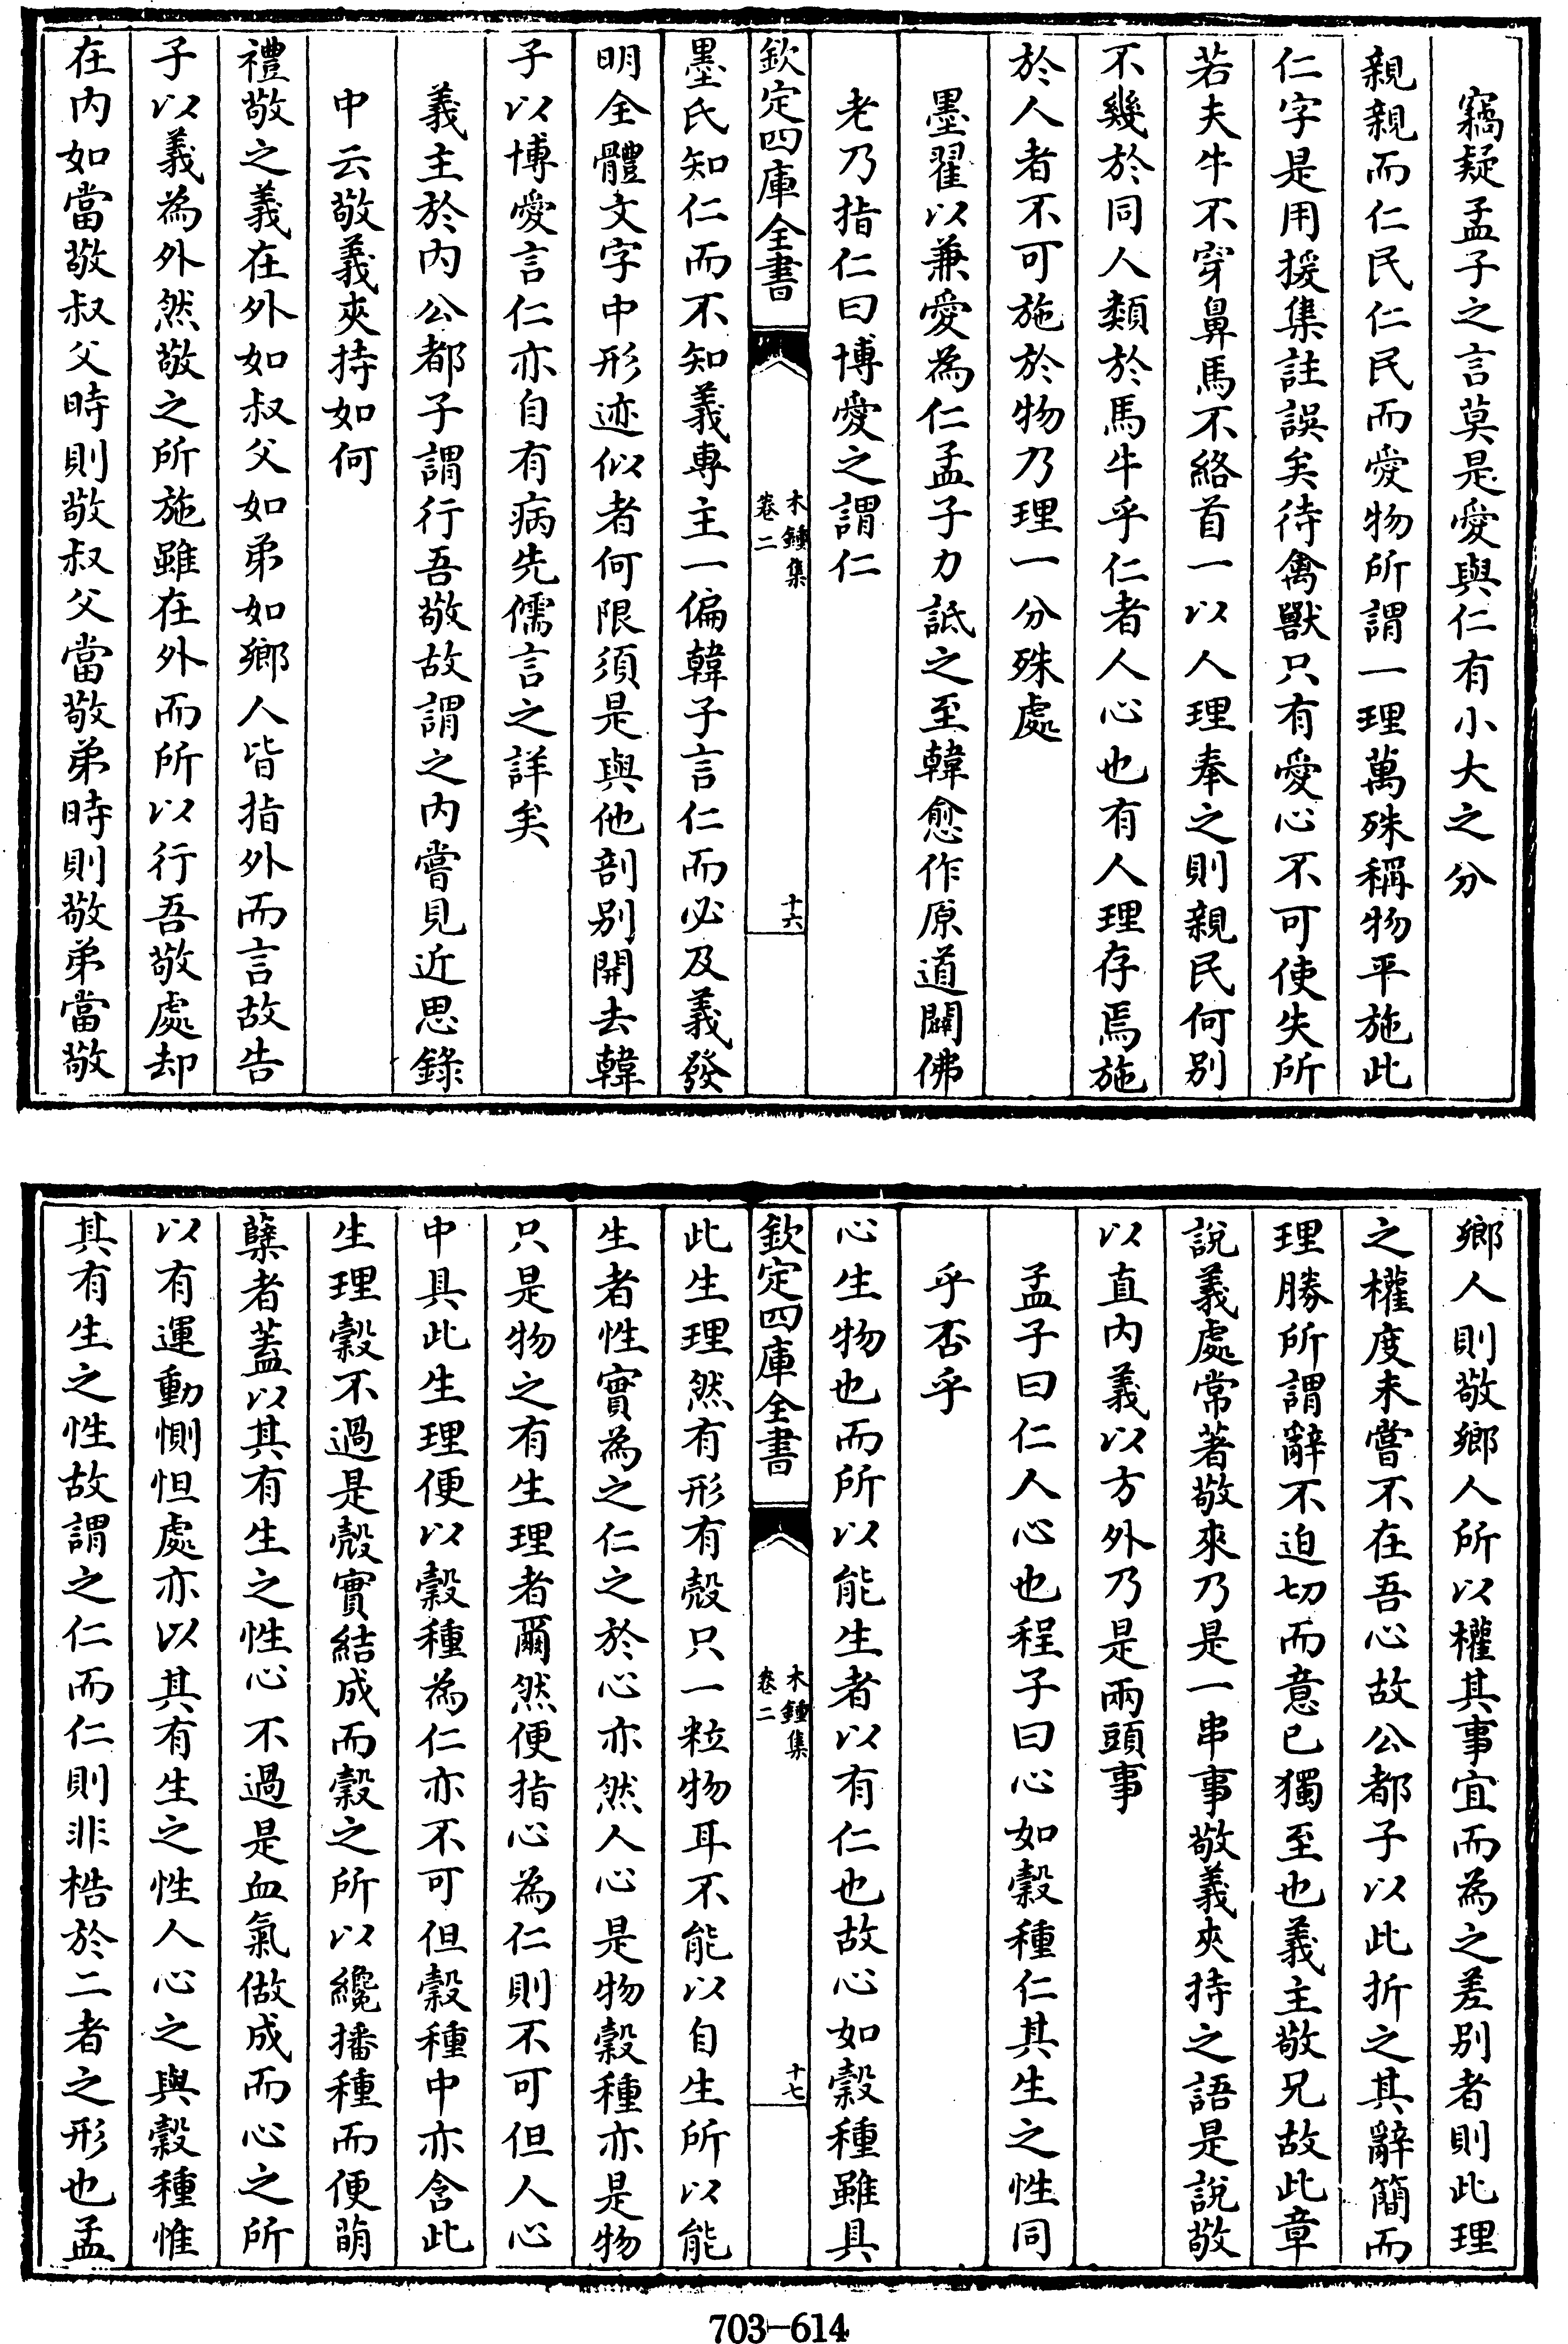 竊疑孟子之言莫是愛與仁有小大之分
親親而仁民仁民而愛物所謂一理萬殊稱物平施此
仁字是用援集註誤矣待禽獸只有愛心不可使失所
若夫牛不穿鼻馬不絡首一以人理奉之則親民何别
不幾於同人類於馬牛乎仁者人心也有人理存焉施
於人者不可施於物乃理一分殊處
墨翟以兼愛為仁孟子力詆之至韓愈作原道闢佛
老乃指仁曰博愛之謂仁
欽定四庫全書
木鍾集
卷二
十六
墨氏知仁而不知義專主一偏韓子言仁而必及義發
明全體文字中形迹似者何限須是與他剖别開去韓
子以博愛言仁亦自有病先儒言之詳矣
義主於内公都子謂行吾敬故謂之内嘗見近思錄
中云敬義夾持如何
禮敬之義在外如叔父如弟如鄉人皆指外而言故告
子以義為外然敬之所施雖在外而所以行吾敬處却
在内如當敬叔父時則敬叔父當敬弟時則敬弟當敬
鄉人則敬鄉人所以權其事宜而為之差别者則此理
之權度未嘗不在吾心故公都子以此折之其辭簡而
理勝所謂辭不迫切而意已獨至也義主敬兄故此章
說義處常著敬來乃是一串事敬義夾持之語是說敬
以直内義以方外乃是兩頭事
孟子曰仁人心也程子曰心如穀種仁其生之性同
乎否乎
心生物也而所以能生者以有仁也故心如穀種雖具
欽定四庫全書
木鍾集
卷二
十七
此生理然有形有殻只一粒物耳不能以自生所以能
生者性實為之仁之於心亦然人心是物穀種亦是物
只是物之有生理者爾然便指心為仁則不可但人心
中具此生理便以穀種為仁亦不可但穀種中亦含此
生理穀不過是殻實結成而穀之所以纔播種而便萌
蘖者蓋以其有生之性心不過是血氣做成而心之所
以有運動惻怛處亦以其有生之性人心之與穀種惟
其有生之性故謂之仁而仁則非梏於二者之形也孟
703-614